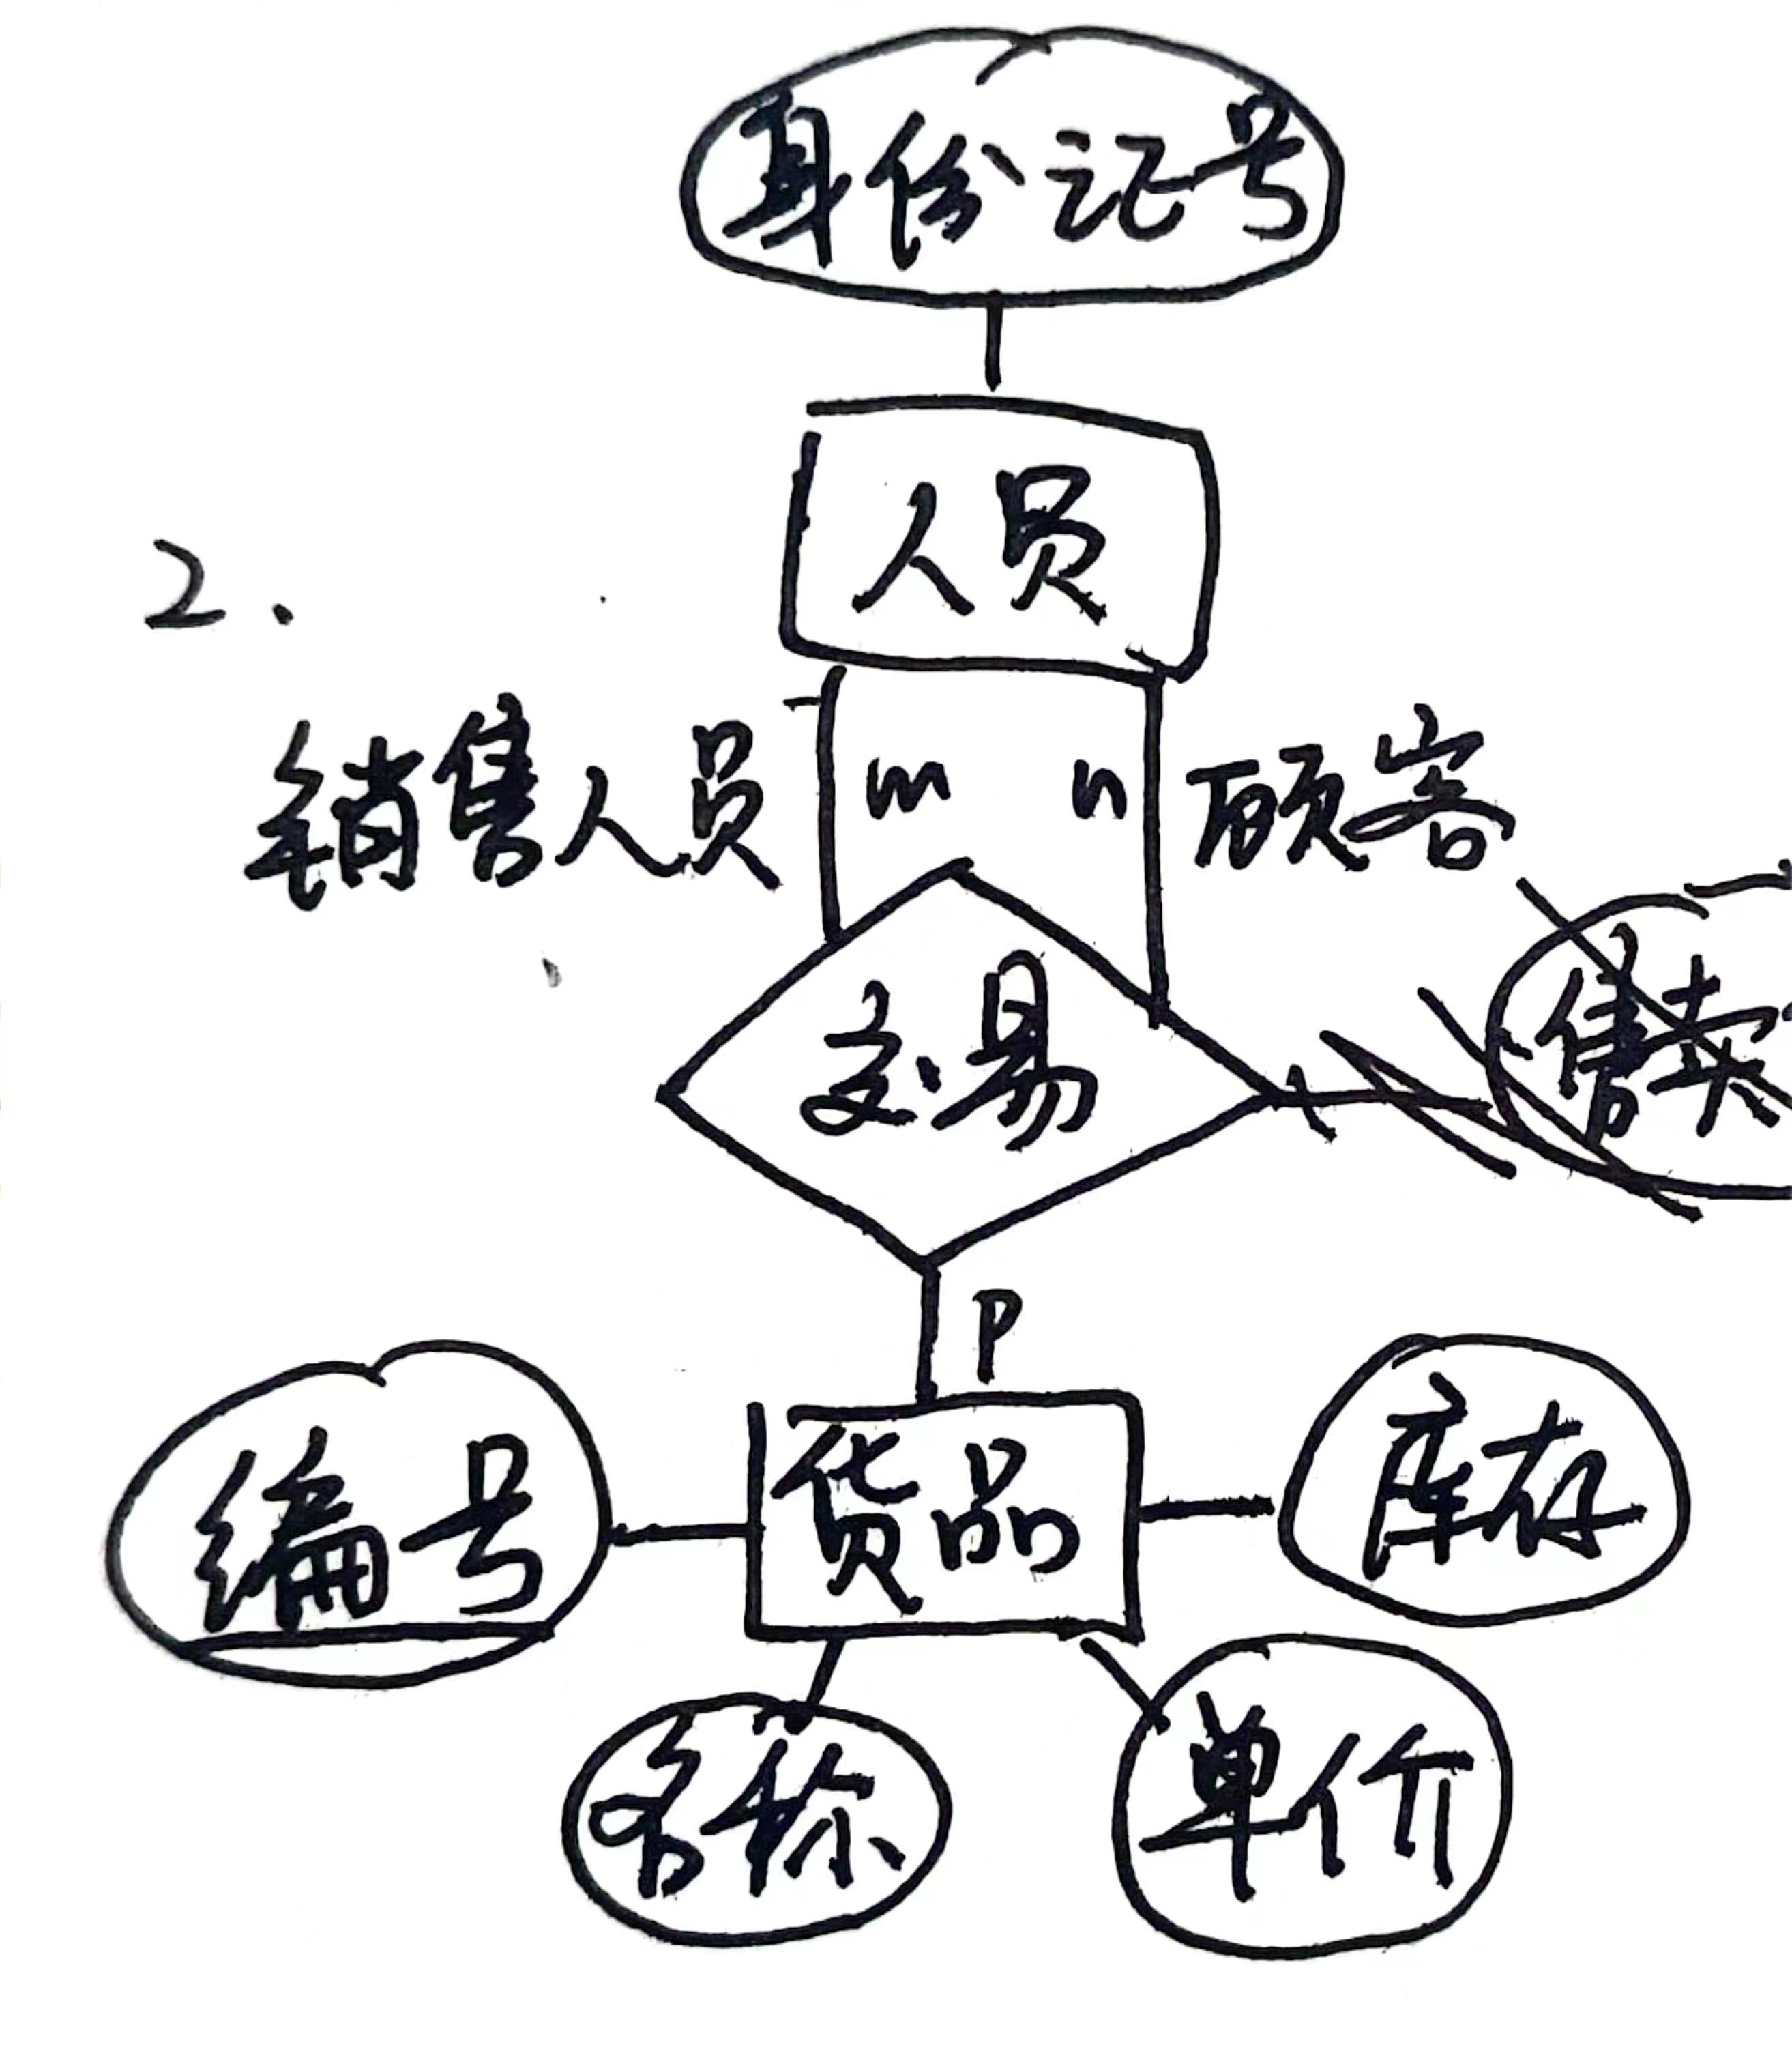 身份证号
人员
2、
销售人员 m n 顾客
交易
售卖
P
编号 货品 库存
名称 单价